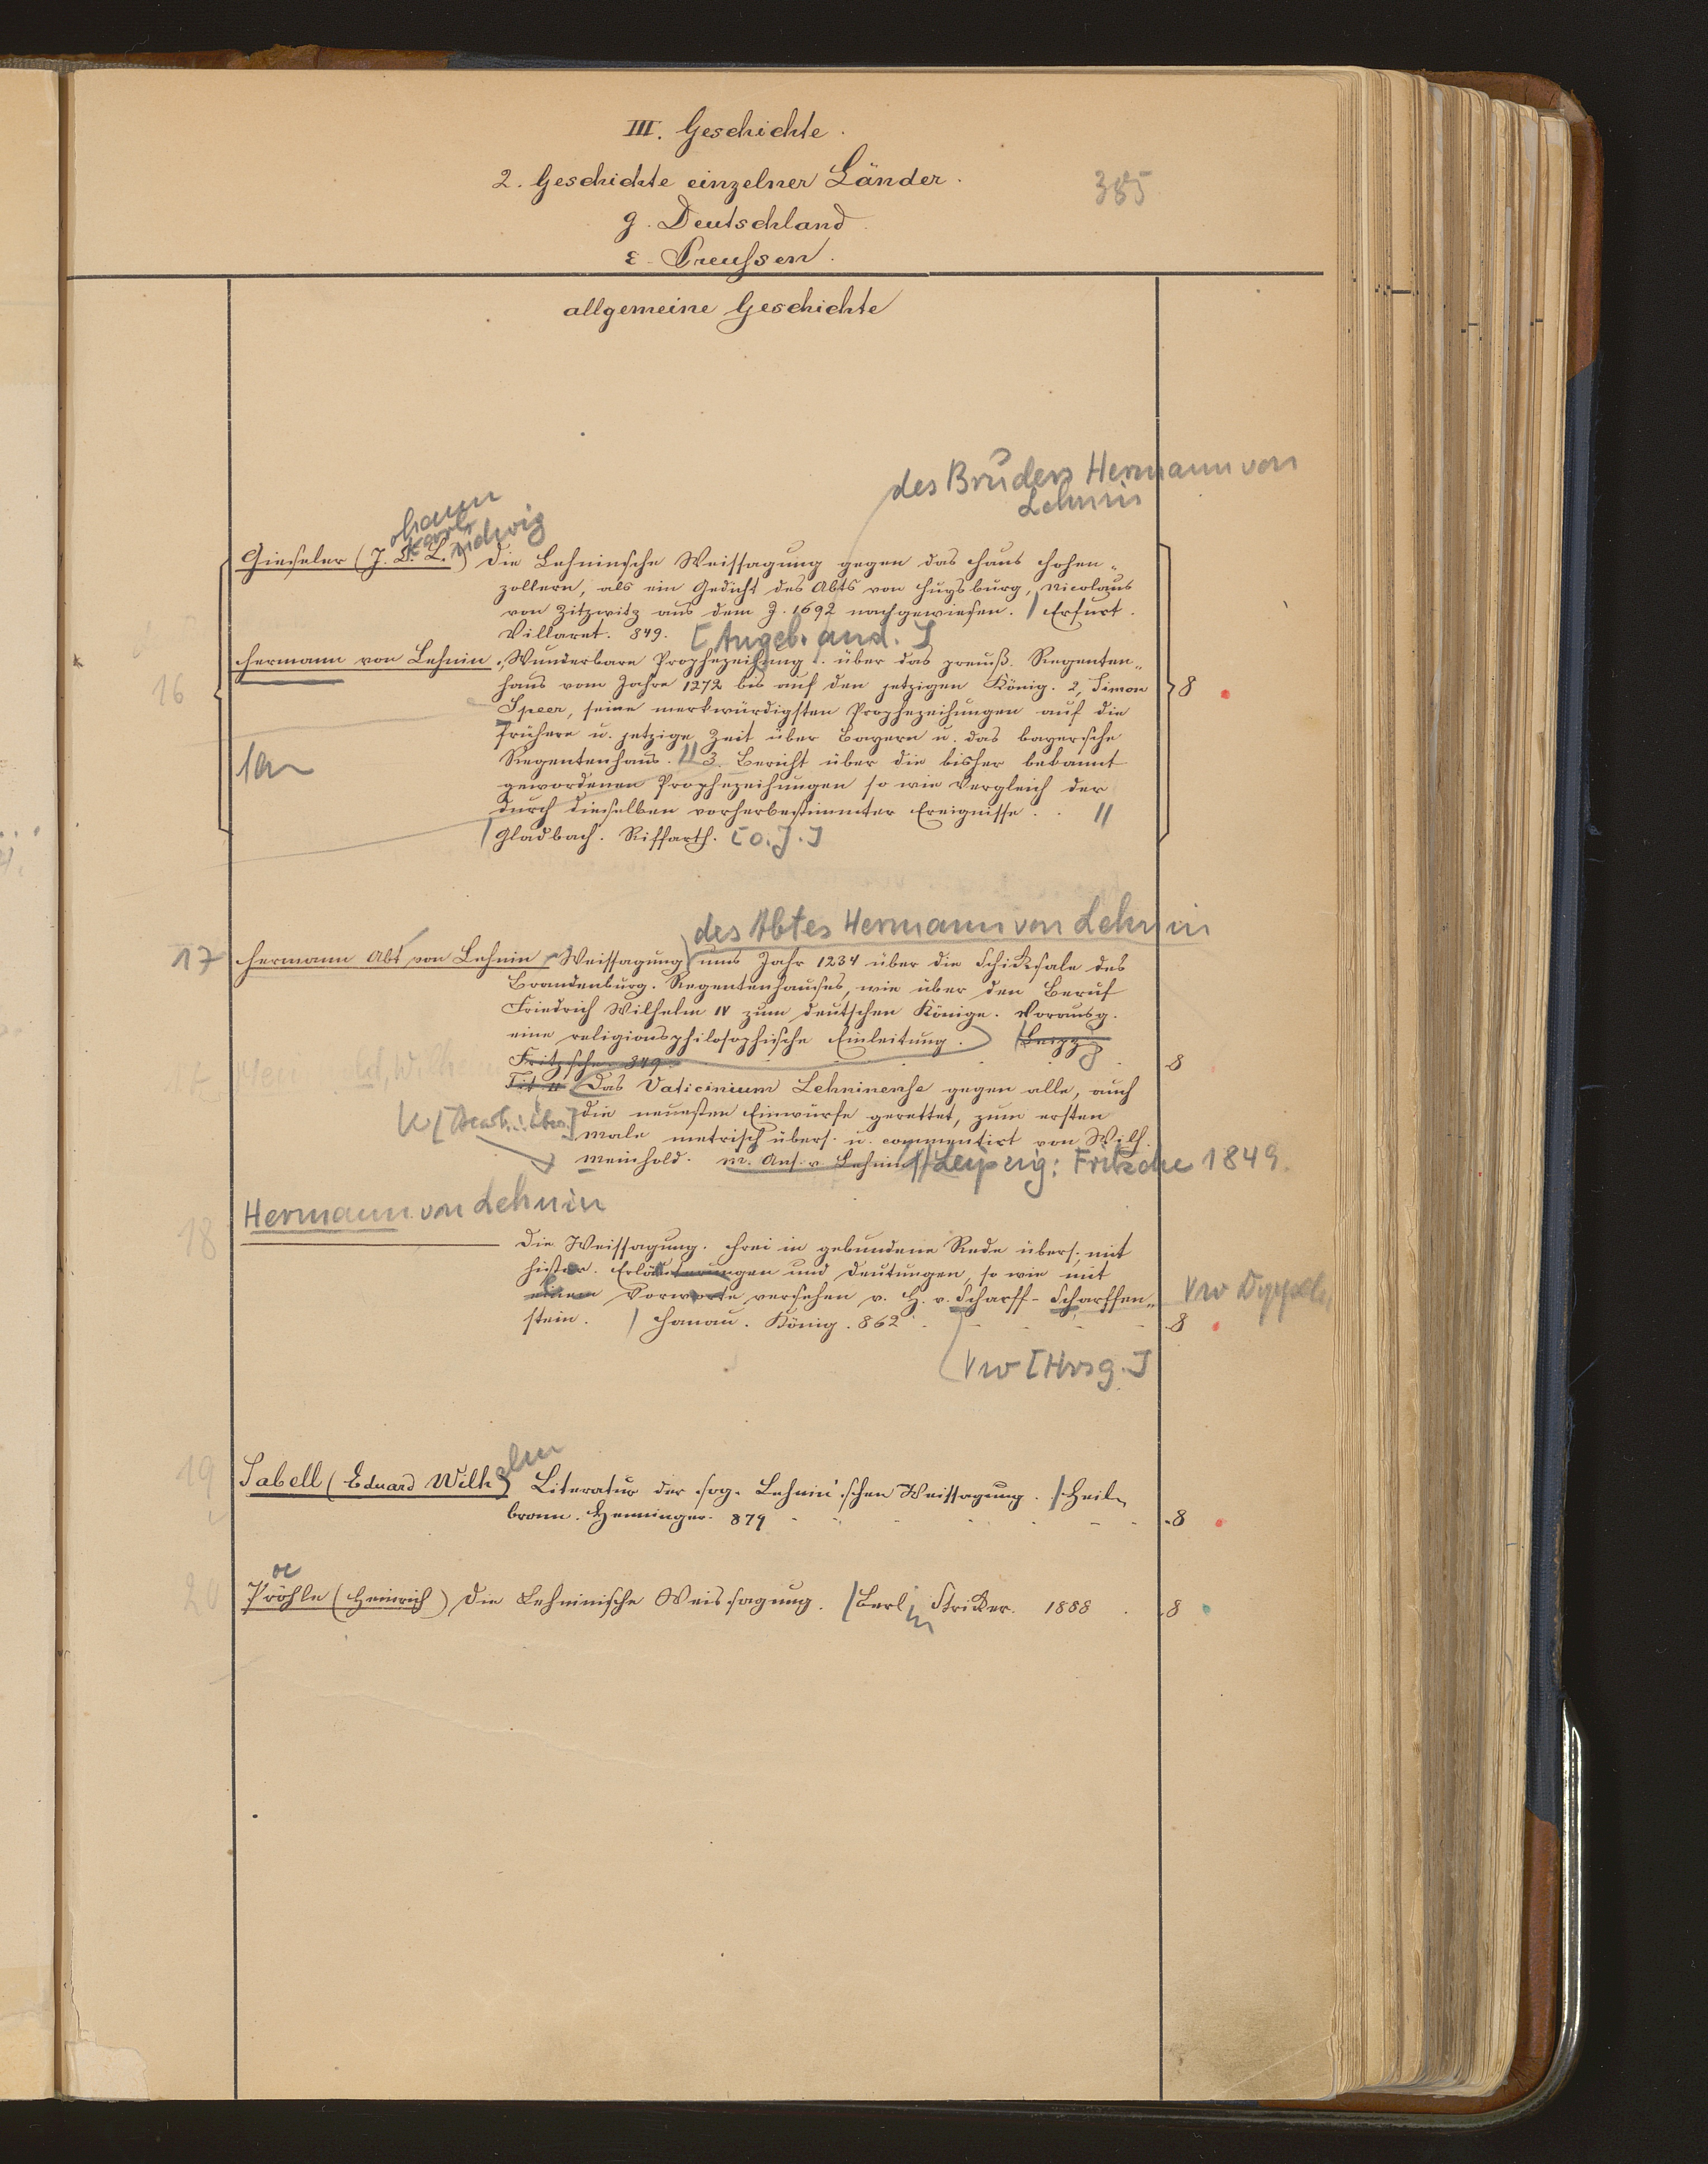 III. Geschichte.
2. Geschichte einzelner Länder.
385
g. Deutschland
ε. Preußen.
allgemeine Geschichte
des Bruders Hermann von
Lehnin
ohann
Karl
udwig
Gieseler (J. C. L.) Die Lehninsche Weissagung gegen das Haus Hohen-
zollern, als ein Gedicht des Abts von Huysburg, Nicolaus
von Zitzwitz aus dem J. 1692 nachgewiesen. / Erfurt.
Villaret. 849. [Angeb. and.]
Hermann von Lehnin. Wunderbare Prophezeihung .. über das preuß. Regenten-
16
haus vom Jahre 1272 bis auf den jetzigen König. 2, Simon
8
Speer, seine merkwürdigsten Prophezeihungen auf die
frühere u. jetzige Zeit über Bayern u. das bayersche
Regentenhaus. // 3. Bericht über die bisher bekannt
gewordenen Prophezeihungen so wie Vergleich der
durch dieselben vorherbestimmter Ereignisse. . //
/ Gladbach. Riffarth. [o. J.]
des Abtes Hermann von Lehnin
17 Hermann Abt von Lehnin Weissagung ums Jahr 1234 über die Schicksale des
Brandenburg. Regentenhauses, wie über den Beruf
Friedrich Wilhelm IV zum deutschen Könige. Vorausg.
eine religionsphilosophische Einleitung. / Leipzg
Fritzsche. 849. 8
Tit. II Das Vaticinium Lehninense gegen alle, auch
die neuesten Einwürfe gerettet, zum ersten
male metrisch übers. u. commentirt von Wilh.
Meinhold. m. Ans. v. Lehnin // Leipzig: Fritzsche 1849.
Hermann von Lehnin
18
Die Weissagung. Frei in gebundene Rede übers. mit
histor. Erläuterungen und Deutungen, so wie mit
einem Vorworte versehen v. H. v. Scharff-Scharffen-
stein. / Hanau. König. 862 8
Vw [Hrsg.]
elm
19 Sabell (Eduard Wilh) Literatur der sog. Lehnin'schen Weissagung. / Heil-
bronn. Henninger. 879 8
oe
20 Pröhle (Heinrich) Die Lehninische Weissagung. / Berlin Stricker. 1888 . 8